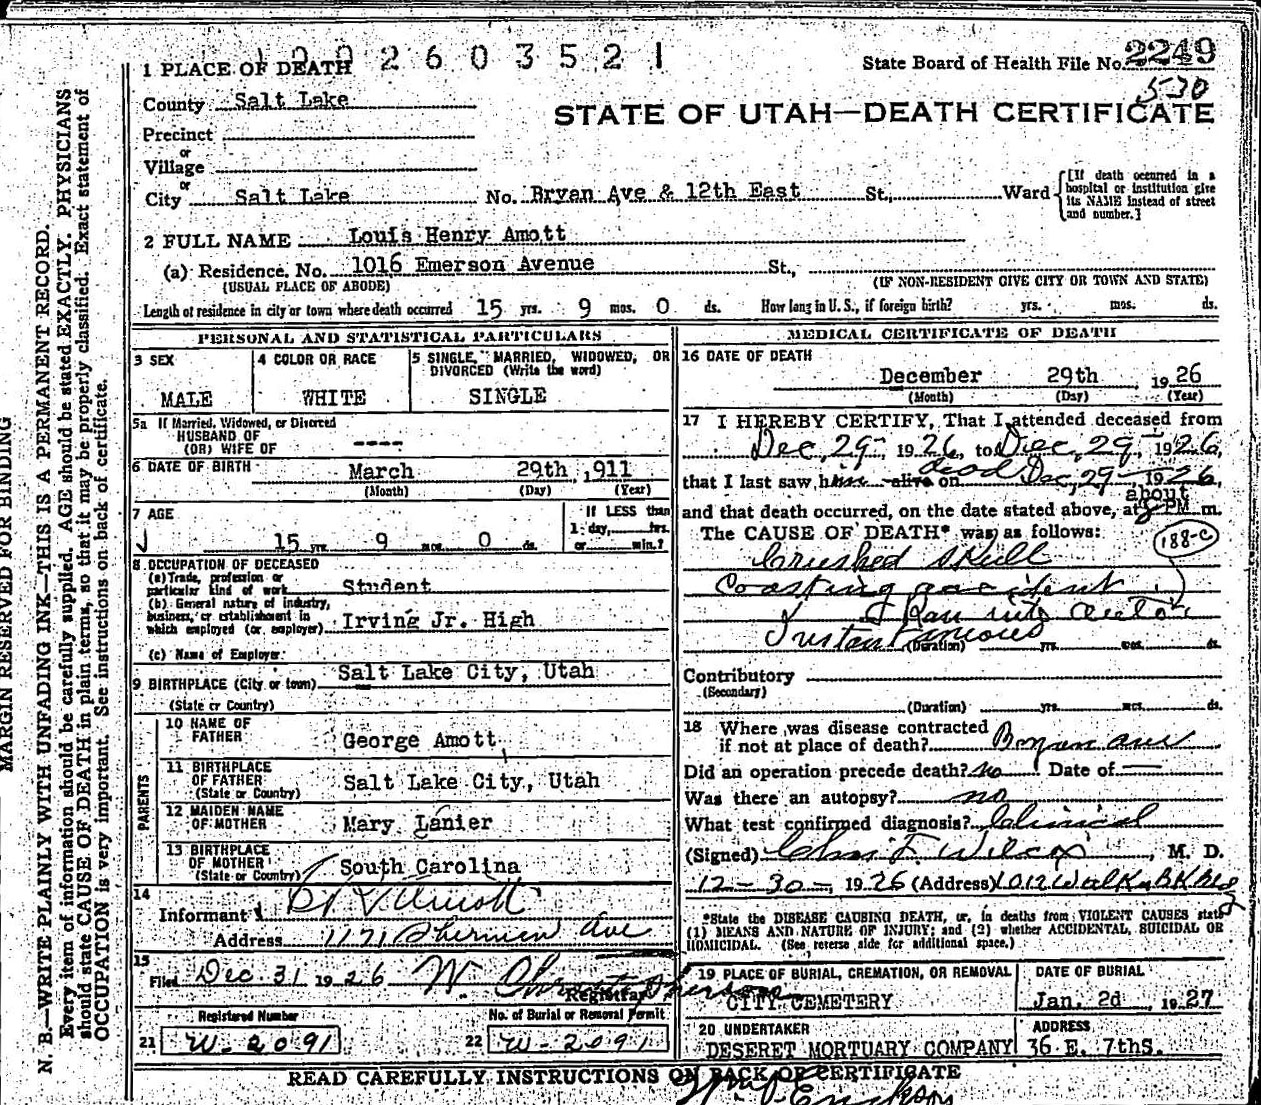 1002603521
State Board of Health File No. 2249
530
1 PLACE OF DEATH
County Salt Lake
STATE OF UTAH—DEATH CERTIFICATE
Precinct
or
Village
or
City Salt Lake No. Bryan Ave & 12th East St., Ward
[If death occurred in a hospital or institution give its NAME instead of street and number.]
2 FULL NAME Louis Henry Amott
(a) Residence. No. 1016 Emerson Avenue St.,
(USUAL PLACE OF ABODE) (IF NON-RESIDENT GIVE CITY OR TOWN AND STATE)
Length of residence in city or town where death occurred 15 yrs. 9 mos. 0 ds. How long in U. S., if foreign birth? yrs. mos. ds.
PERSONAL AND STATISTICAL PARTICULARS
3 SEX
MALE
4 COLOR OR RACE
WHITE
5 SINGLE, MARRIED, WIDOWED, OR
DIVORCED (Write the word)
SINGLE
5a If Married, Widowed, or Divorced
HUSBAND OF
(OR) WIFE OF ----
6 DATE OF BIRTH March 29th ,911
(Month) (Day) (Year)
7 AGE
15 yrs. 9 mos. 0 ds.
If LESS than
1 day, hrs.
or min.?
8 OCCUPATION OF DECEASED
(a) Trade, profession or
particular kind of work Student
(b) General nature of industry,
business, or establishment in
which employed (or employer) Irving Jr. High
(c) Name of Employer
9 BIRTHPLACE (City or town) Salt Lake City, Utah
(State or Country)
PARENTS
10 NAME OF
FATHER George Amott
11 BIRTHPLACE
OF FATHER
(State or Country) Salt Lake City, Utah
12 MAIDEN NAME
OF MOTHER Mary Lanier
13 BIRTHPLACE
OF MOTHER
(State or Country) South Carolina
14
Informant Amott
Address 1171 Sherman Ave
15
Filed Dec. 31 1926 W.
Registrar
Registered Number
21 W-2091
No. of Burial or Removal Permit
22 W-2091
MEDICAL CERTIFICATE OF DEATH
16 DATE OF DEATH
December 29th, 1926
(Month) (Day) (Year)
17 I HEREBY CERTIFY, That I attended deceased from
Dec, 29, 1926, to Dec, 29, 1926,
that I last saw him alive on dead Dec, 29 1926,
about
and that death occurred, on the date stated above, at 8 PM m.
The CAUSE OF DEATH* was as follows:
188-c
Crushed skull
Coasting accident
Ran into auto
Instantaneous
(Duration) yrs. mos. ds.
Contributory
(Secondary)
(Duration) yrs. mos. ds.
18 Where was disease contracted
if not at place of death? Bryan ave
Did an operation precede death? no Date of —
Was there an autopsy? no
What test confirmed diagnosis? Clinical
(Signed) Chas F. Wilcox, M. D.
12-30-, 1926 (Address) 1012 Walker Bk Bldg
*State the DISEASE CAUSING DEATH, or, in deaths from VIOLENT CAUSES state
(1) MEANS AND NATURE OF INJURY; and (2) whether ACCIDENTAL, SUICIDAL OR
HOMICIDAL. (See reverse side for additional space.)
19 PLACE OF BURIAL, CREMATION, OR REMOVAL
CITY CEMETERY
DATE OF BURIAL
Jan. 2d, 1927
20 UNDERTAKER
DESERET MORTUARY COMPANY
ADDRESS
36 E. 7thS.
READ CAREFULLY INSTRUCTIONS ON BACK OF CERTIFICATE
Erickson
MARGIN RESERVED FOR BINDING
N. B.—WRITE PLAINLY WITH UNFADING INK—THIS IS A PERMANENT RECORD.
Every item of information should be carefully supplied. AGE should be stated EXACTLY. PHYSICIANS
should state CAUSE OF DEATH in plain terms, so that it may be properly classified. Exact statement of
OCCUPATION is very important. See instructions on back of certificate.